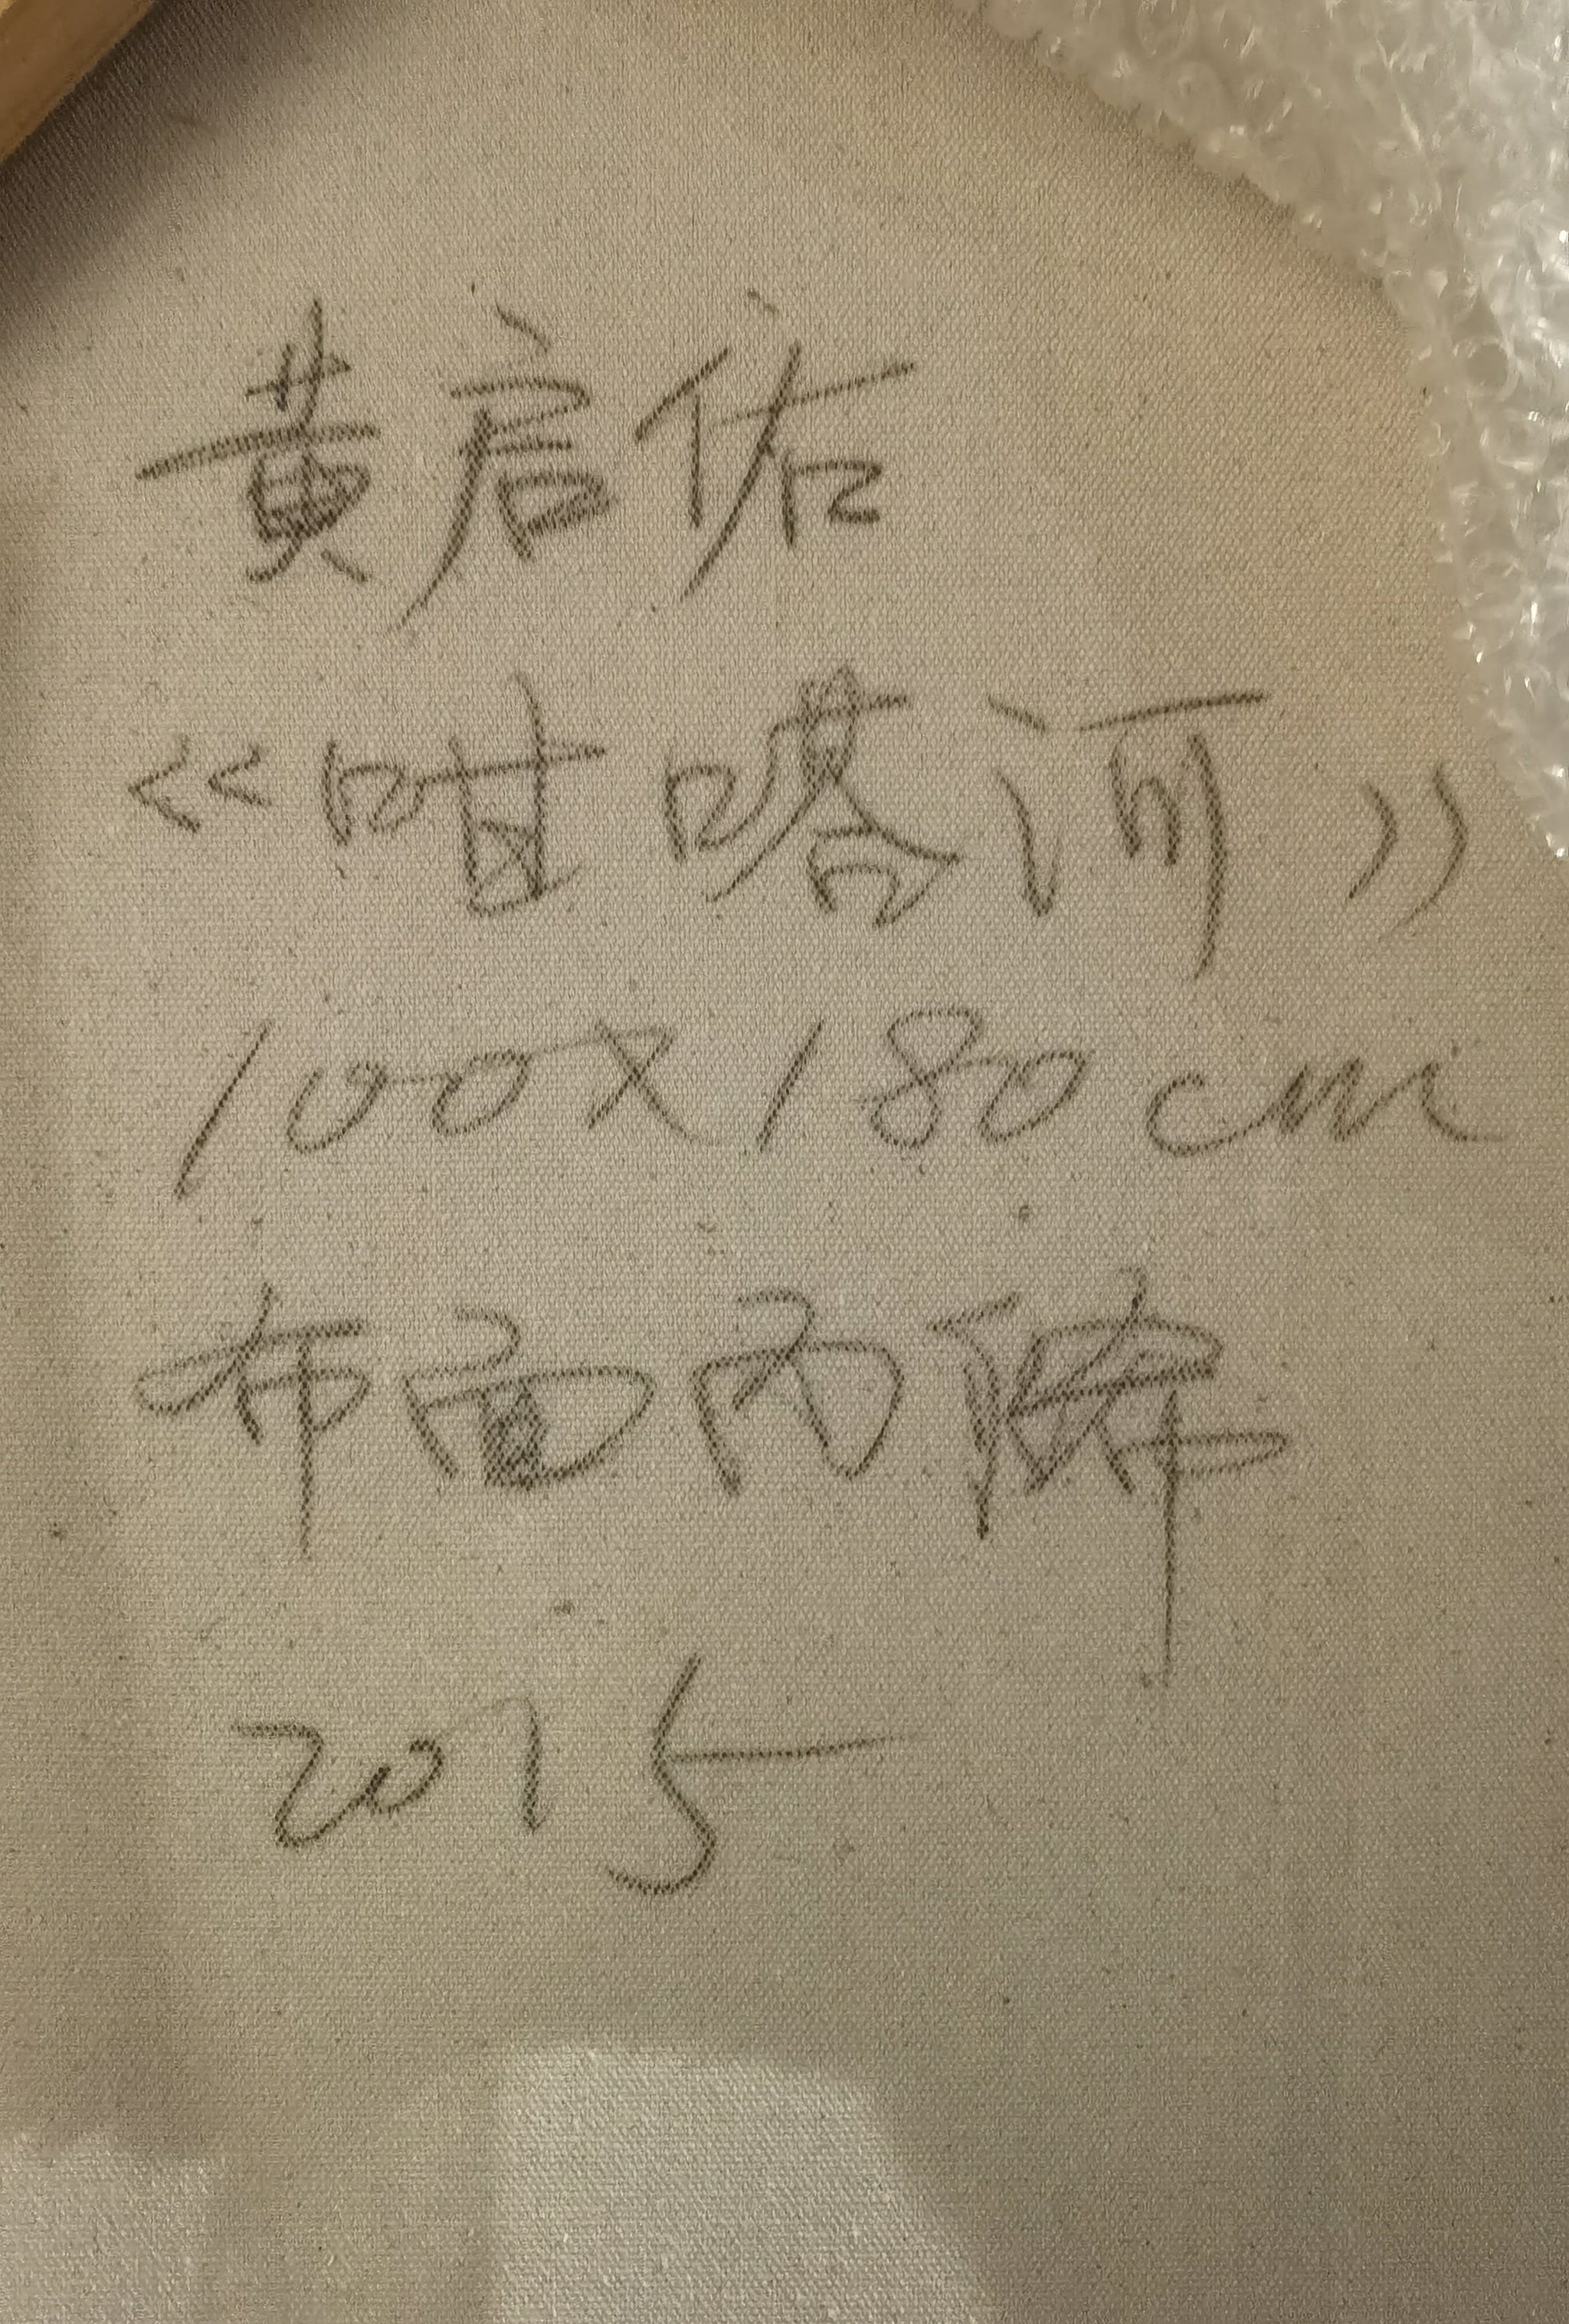 黄启佑
《咁嗒河》
100X180cm
布面丙稀
2015